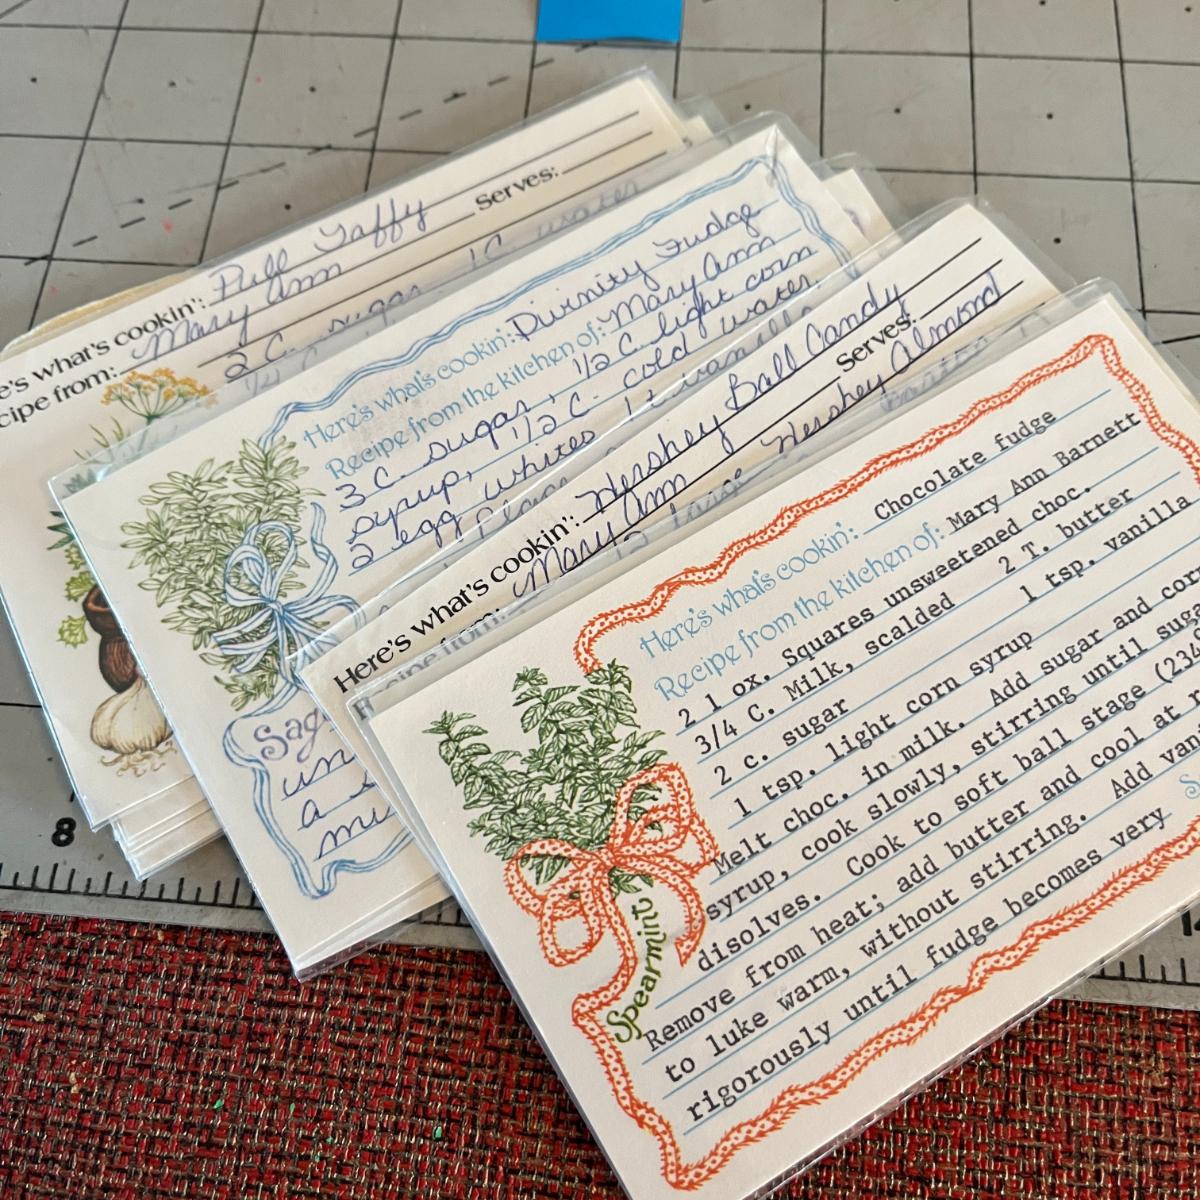 Here's what's cookin': Pull Taffy
Recipe from: Mary Ann Serves:
2 C. sugar 1 C. water
Here's what's cookin': Divinity Fudge
Recipe from the kitchen of: Mary Ann
3 C. sugar, 1/2 C. light corn
syrup, 1/2 C. cold water,
2 egg whites 1 t. vanilla
Sag
un
a
mi
Here's what's cookin': Hershey Ball Candy
Mary Ann Serves:
12 large Hershey Almond
Here's what's cookin': Chocolate fudge
Recipe from the kitchen of: Mary Ann Barnett
2 1 ox. Squares unsweetened choc.
3/4 C. Milk, scalded 2 T. butter
2 c. sugar 1 tsp. vanilla
1 tsp. light corn syrup
Melt choc. in milk. Add sugar and corn
syrup, cook slowly, stirring until suga
disolves. Cook to soft ball stage (234
Remove from heat; add butter and cool at r
to luke warm, without stirring. Add van
rigorously until fudge becomes very
Spearmint
8